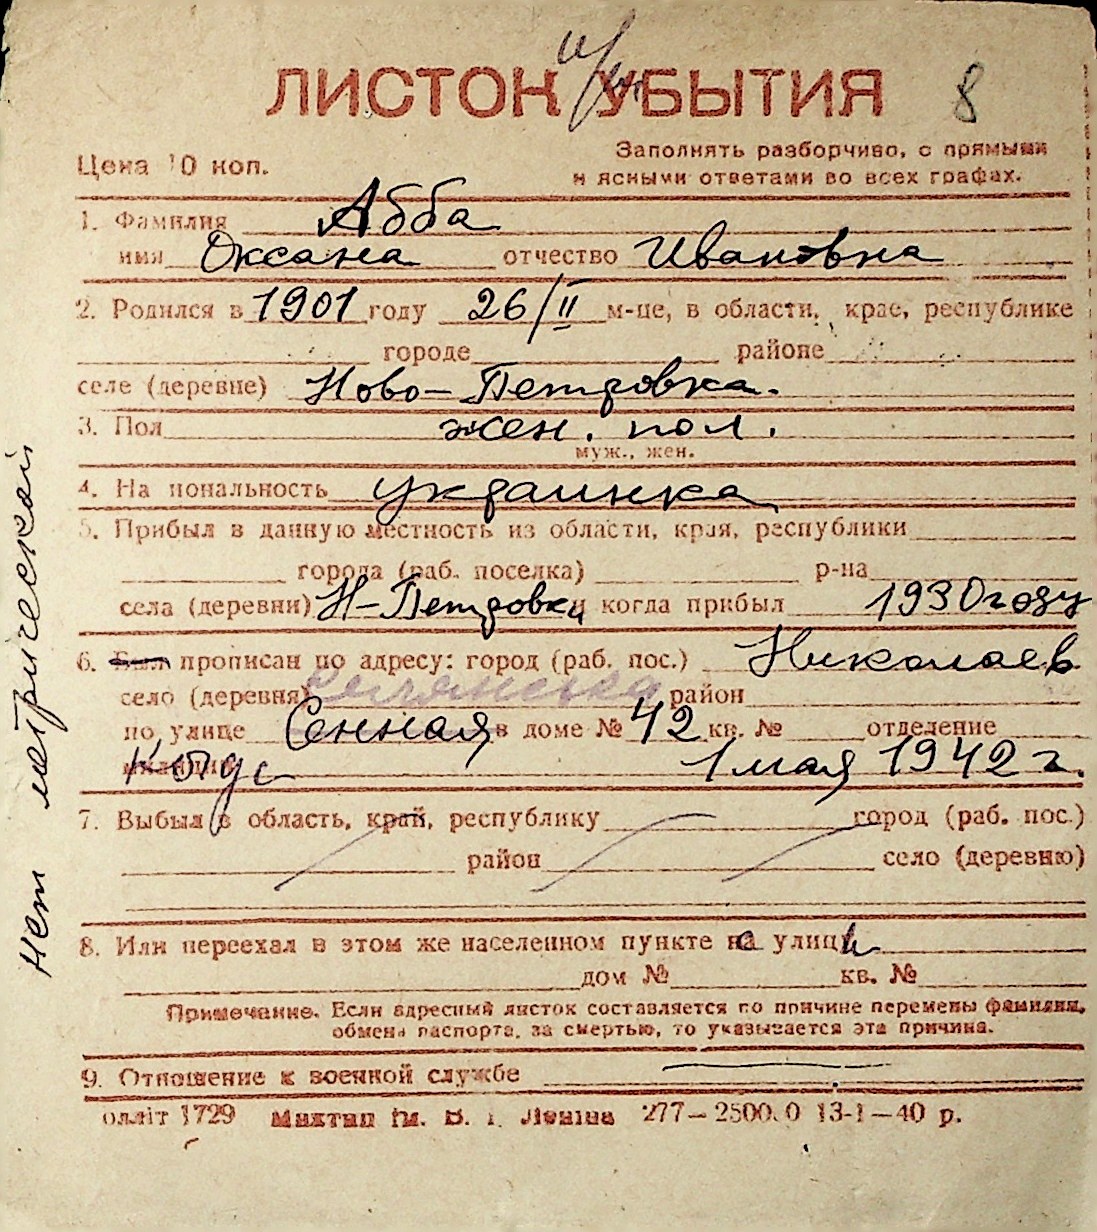 ЛИСТОК УБЫТИЯ 8
Цена 10 коп.
Заполнять разборчиво, с прямыми
и ясными ответами во всех графах.
1. Фамилия Абба
имя Оксана отчество Ивановна
2. Родился в 1901 году 26/II м-це, в области, крае, республике
городе районе
селе (деревне) Ново-Петровка.
3. Пол жен. пол.
муж., жен.
4. На иональность украинка
5. Прибыл в данную местность из области, края, республики
города (раб. поселка) р-на
села (деревни) Н-Петровки когда прибыл 1930 году
6. Был прописан по адресу: город (раб. пос.) Николаев
село (деревня) район
по улице Сенная в доме № 42 кв. № отделение
Когда 1 мая 1942 г.
7. Выбыл в область, край, республику город (раб. пос.)
район село (деревню)
8. Или переехал в этом же населенном пункте с улицы
дом № кв. №
Примечание. Если адресный листок составляется по причине перемены фамилии,
обмена паспорта, за смертью, то указывается эта причина.
9. Отношение к военной службе
оллiт 1729 Iм. В. I. Ленiна 277—2500.0 13-1—40 р.
нет метрической